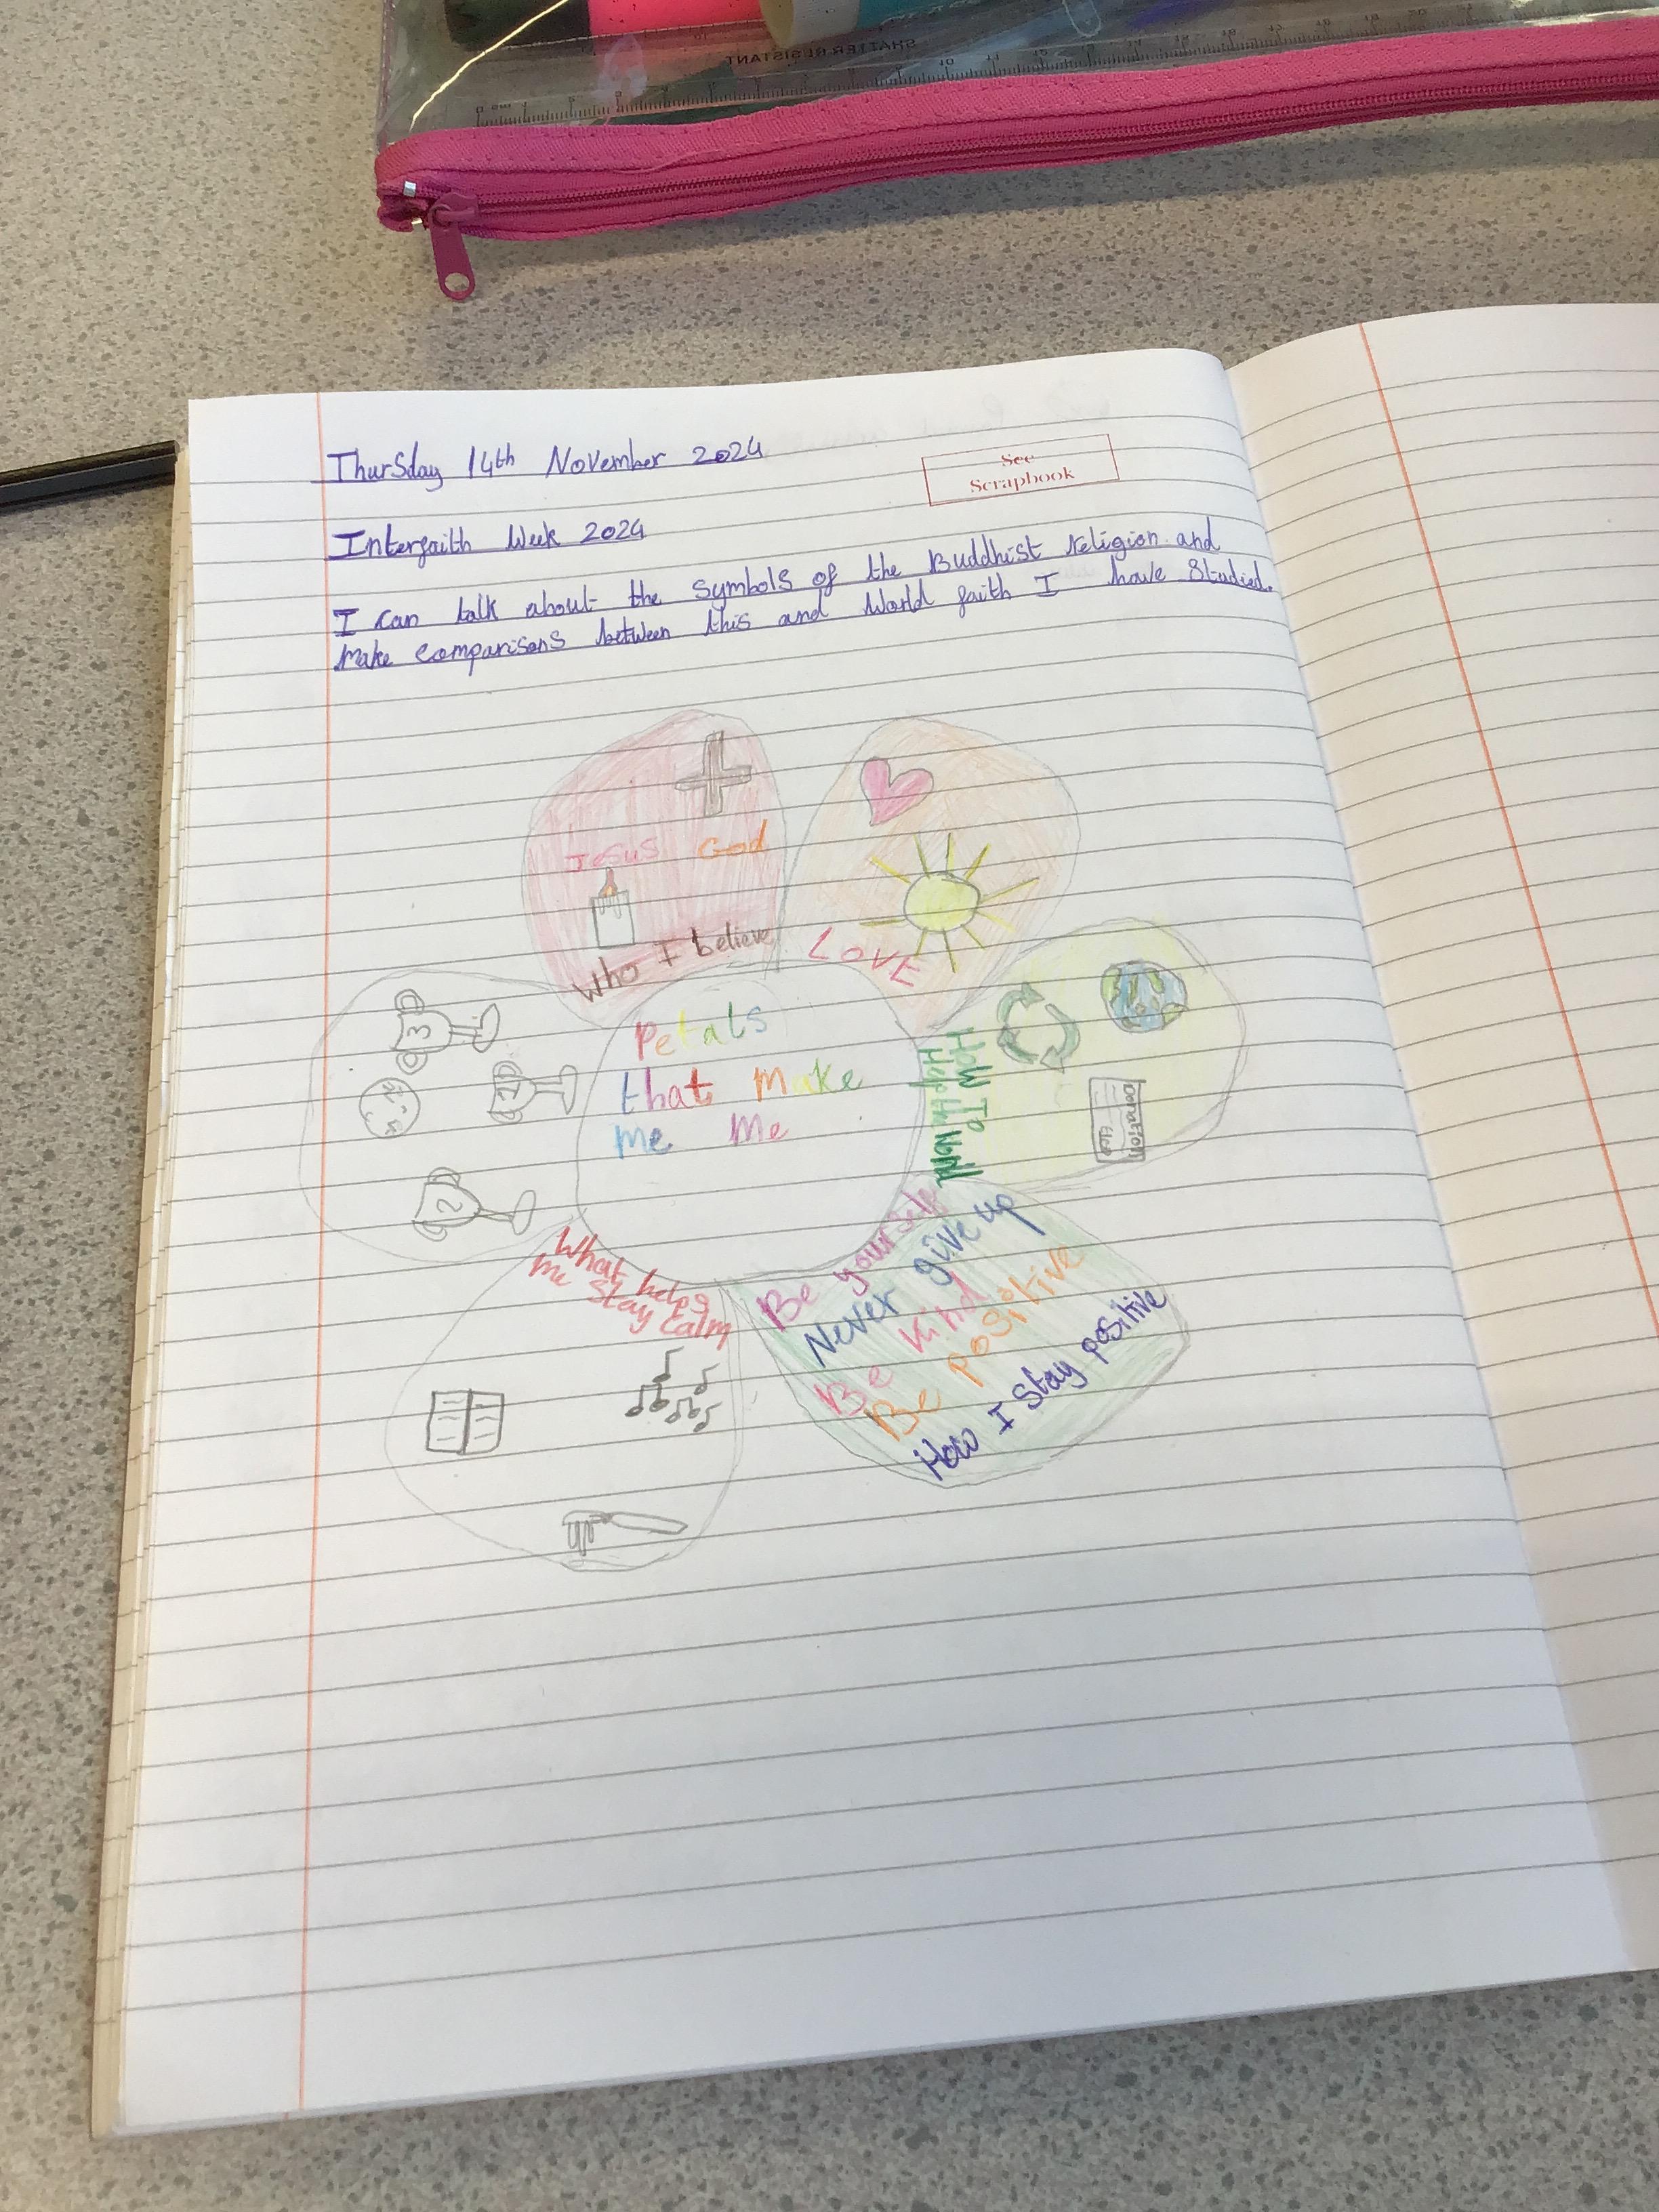 SHATTER RESISTANT
Thursday 14th November 2024
See
Scrapbook
Interfaith Week 2024
I can talk about the symbols of the Buddhist religion and
make comparisons between this and World faith I have studied.
Jesus God
Who I believe
LOVE
Petals
that make
me Me
How To
Help the World
Donation
3
1
2
What helps
me stay calm
Be yourself
Never give up
Be kind
Be positive
How I stay positive